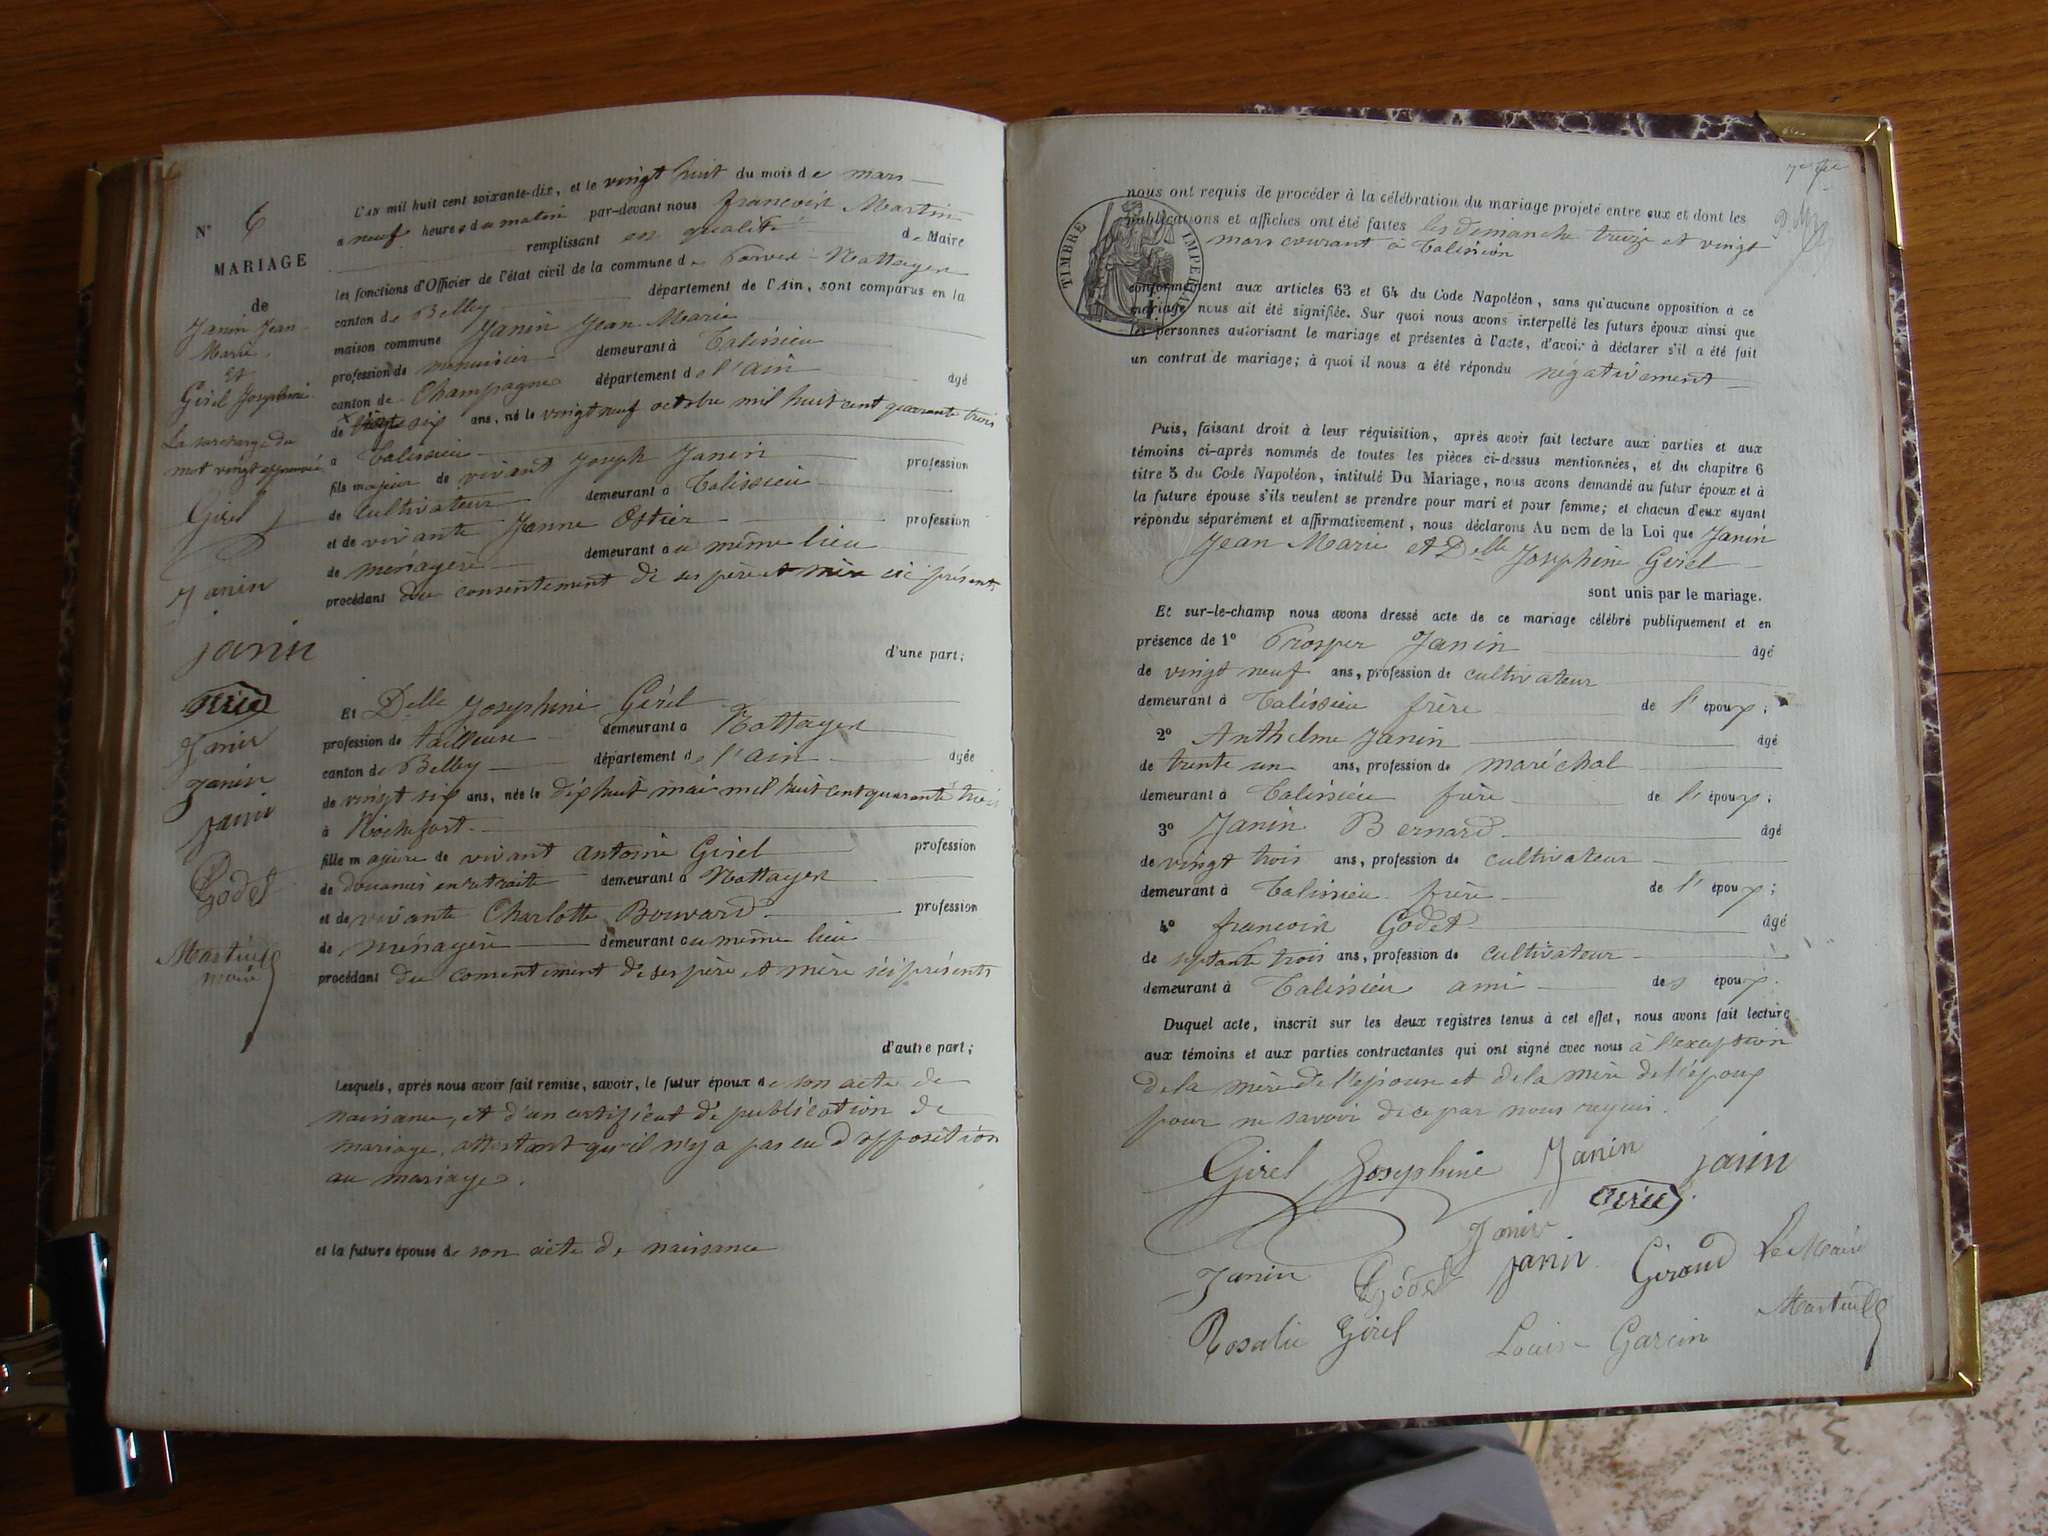 N° 6
MARIAGE
de
Janin Jean
Marie
et
Girel Josephine
La surcharge du
mot vingt approuvée
Girel
Janin
janin
Janin
Janin
janin
Godet
Martin
maire
L'AN mil huit cent soixante-dix, et le vingt huit du mois de mars
a neuf heures du matin par-devant nous françois Martin
remplissant en qualité de Maire
les fonctions d'Officier de l'état civil de la commune de Parves-Nattages
canton de Belley département de l'Ain, sont comparus en la
maison commune Janin Jean Marie
profession de menuisier demeurant à Talissieu
canton de Champagne département de l'ain âgé
de vingt six ans, né le vingt neuf octobre mil huit cent quarante trois
a Talissieu
fils majeur de vivant Joseph Janin profession
de cultivateur demeurant à Talissieu
et de vivante Janne Ostier profession
de ménagère demeurant au même lieu
procédant du consentement de ses père et mère ici présents
d'une part;
Et Delle Josephine Girel
profession de tailleuse demeurant a Nattages
canton de Belley département de l'ain âgée
de vingt six ans, née le dix huit mai mil huit cent quarante trois
à Rochefort
fille majeure de vivant antoine Girel profession
de douanier en retraite demeurant à Nattages
et de vivante Charlotte Bouvard profession
de ménagère demeurant au même lieu
procédant du consentement de ses père et mère ici présents
d'autre part;
Lesquels, après nous avoir fait remise, savoir, le futur époux de son acte de
naissance, et d'un certificat de publication de
mariage, attestant qu'il n'y a pas eu d'opposition
au mariage.
et la future épouse de son acte de naissance
TIMBRE IMPERIAL
nous ont requis de procéder à la célébration du mariage projeté entre eux et dont les
publications et affiches ont été faites les dimanche treize et vingt
mars courant à Talissieu
conformément aux articles 63 et 64 du Code Napoléon, sans qu'aucune opposition à ce
mariage nous ait été signifiée. Sur quoi nous avons interpellé les futurs époux ainsi que
les personnes autorisant le mariage et présentes à l'acte, d'avoir à déclarer s'il a été fait
un contrat de mariage; à quoi il nous a été répondu négativement
Puis, faisant droit à leur réquisition, après avoir fait lecture aux parties et aux
témoins ci-après nommés de toutes les pièces ci-dessus mentionnées, et du chapitre 6
titre 5 du Code Napoléon, intitulé Du Mariage, nous avons demandé au futur époux et à
la future épouse s'ils veulent se prendre pour mari et pour femme; et chacun d'eux ayant
répondu séparément et affirmativement, nous déclarons Au nom de la Loi que Janin
Jean Marie et Delle Josephine Girel
sont unis par le mariage.
Et sur-le-champ nous avons dressé acte de ce mariage célébré publiquement et en
présence de 1° Prosper Janin âgé
de vingt neuf ans, profession de cultivateur
demeurant à Talissieu frère de l'époux;
2° Anthelme Janin âgé
de trente un ans, profession de maréchal
demeurant à Talissieu frère de l'époux;
3° Janin Bernard âgé
de vingt trois ans, profession de cultivateur
demeurant à Talissieu frère de l'époux;
4° françois Godet âgé
de septante trois ans, profession de cultivateur
demeurant à Talissieu ami des époux.
Duquel acte, inscrit sur les deux registres tenus à cet effet, nous avons fait lecture
aux témoins et aux parties contractantes qui ont signé avec nous à l'exception
de la mère de l'épouse et de la mère de l'époux
pour ne savoir de ce par nous requis.
Girel Josephine Janin janin
Janin
Janin Godet janin Giroud Le Maire
Martin
Rosalie Girel Louis Garcin